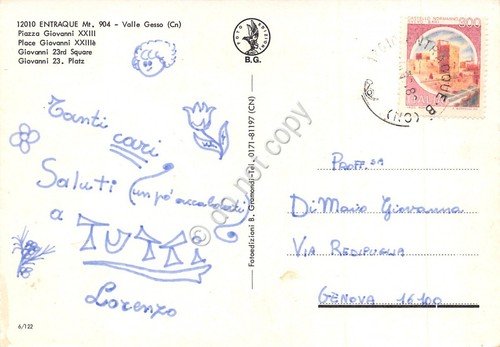 12010 ENTRAQUE Mt. 904 - Valle Gesso (Cn)
Piazza Giovanni XXIII
Place Giovanni XXIIIè
Giovanni 23rd Square
Giovanni 23. Platz
B.G.
Tanti cari
Saluti (un po' accaldati)
a TUTTI
Lorenzo
6/122
Fotoedizioni B. Gramondi - Tel. 0171-81197 (CN)
© do not copy
600
(CN)
PROFF.SSA
DI MARIO GIOVANNA
VIA REDIPUGLIA
GENOVA 16100